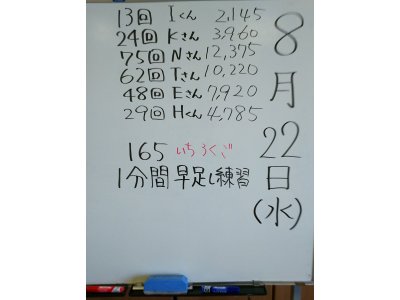 13回 Iくん 2,145
24回 Kさん 3,960
75回 Nさん 12,375
62回 Tさん 10,220
48回 Eさん 7,920
29回 Hくん 4,785
165 いちろくご
1分間早足し練習
8月22日(水)